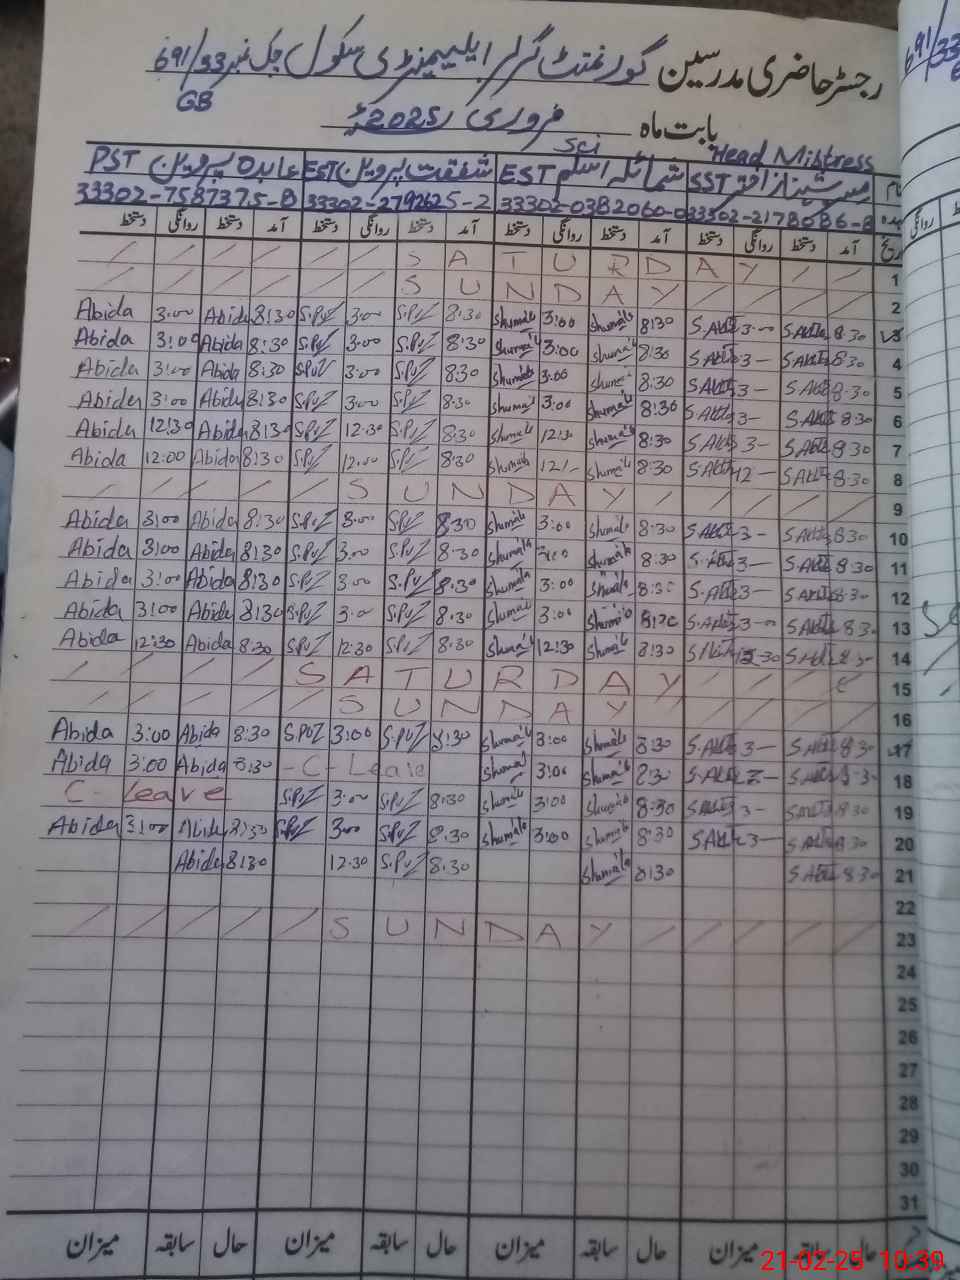 رجسٹر حاضری مدرسین گورنمنٹ گرلز ایلیمنٹری سکول چک نمبر 691/33
GB
بابت ماہ فروری 2025ء
Head Mistress
Sci
نام مسز شہناز اختر SST شمائلہ اسلم EST شفقت پروین EST عابدہ پروین PST
33302-2178086-8 33302-0382060-0 33302-2792625-2 33302-7587375-8
تاریخ آمد دستخط روانگی دستخط آمد دستخط روانگی دستخط آمد دستخط روانگی دستخط آمد دستخط روانگی دستخط
/ / / / / / S A T U R D A Y / / 1
/ / / / / / S U N D A Y / / / / 2
Abida 3:00 Abida 8:30 S.PVZ 3:00 S.PVZ 8:30 Shumaila 3:00 Shumaila 8:30 3:00 8:30 3
Abida 3:00 Abida 8:30 S.PVZ 3:00 S.PVZ 8:30 Shumaila 3:00 Shumaila 8:30 3— 8:30 4
Abida 3:00 Abida 8:30 S.PVZ 3:00 S.PVZ 8:30 Shumaila 3:00 Shumaila 8:30 3— 8:30 5
Abida 3:00 Abida 8:30 S.PVZ 3:00 S.PVZ 8:30 Shumaila 3:00 Shumaila 8:30 3— 8:30 6
Abida 12:30 Abida 8:30 S.PVZ 12:30 S.PVZ 8:30 Shumaila 12:30 Shumaila 8:30 3— 8:30 7
Abida 12:00 Abida 8:30 S.PVZ 12:00 S.PVZ 8:30 Shumaila 12/- Shumaila 8:30 12— 8:30 8
/ / / / / S U N D A Y / / / / / 9
Abida 3:00 Abida 8:30 S.PVZ 3:00 S.PVZ 8:30 Shumaila 3:00 Shumaila 8:30 3- 8:30 10
Abida 3:00 Abida 8:30 S.PVZ 3:00 S.PVZ 8:30 Shumaila 3:00 Shumaila 8:30 3— 8:30 11
Abida 3:00 Abida 8:30 S.PVZ 3:00 S.PVZ 8:30 Shumaila 3:00 Shumaila 8:30 3— 8:30 12
Abida 3:00 Abida 8:30 S.PVZ 3:00 S.PVZ 8:30 Shumaila 3:00 Shumaila 8:30 3— 8:30 13
Abida 12:30 Abida 8:30 S.PVZ 12:30 S.PVZ 8:30 Shumaila 12:30 Shumaila 8:30 12:30 8:30 14
/ / / / S A T U R D A Y / / / 15
/ / / / / S U N D A Y / / / / 16
Abida 3:00 Abida 8:30 S.PVZ 3:00 S.PVZ 8:30 Shumaila 3:00 Shumaila 8:30 3— 8:30 17
Abida 3:00 Abida 8:30 -C-Leave Shumaila 3:00 Shumaila 8:30 8:30 18
C- Leave S.PVZ 3:00 S.PVZ 8:30 Shumaila 3:00 Shumaila 8:30 3- 8:30 19
Abida 3:00 Abida 8:30 S.PVZ 3:00 S.PVZ 8:30 Shumaila 3:00 Shumaila 8:30 3— 8:30 20
Abida 8:30 12:30 S.PVZ 8:30 Shumaila 8:30 8:30 21
22
/ / / / / S U N D A Y / / / / / 23
24
25
26
27
28
29
30
31
حال سابقہ میزان حال سابقہ میزان حال سابقہ میزان حال سابقہ میزان
21-02-25 10:39